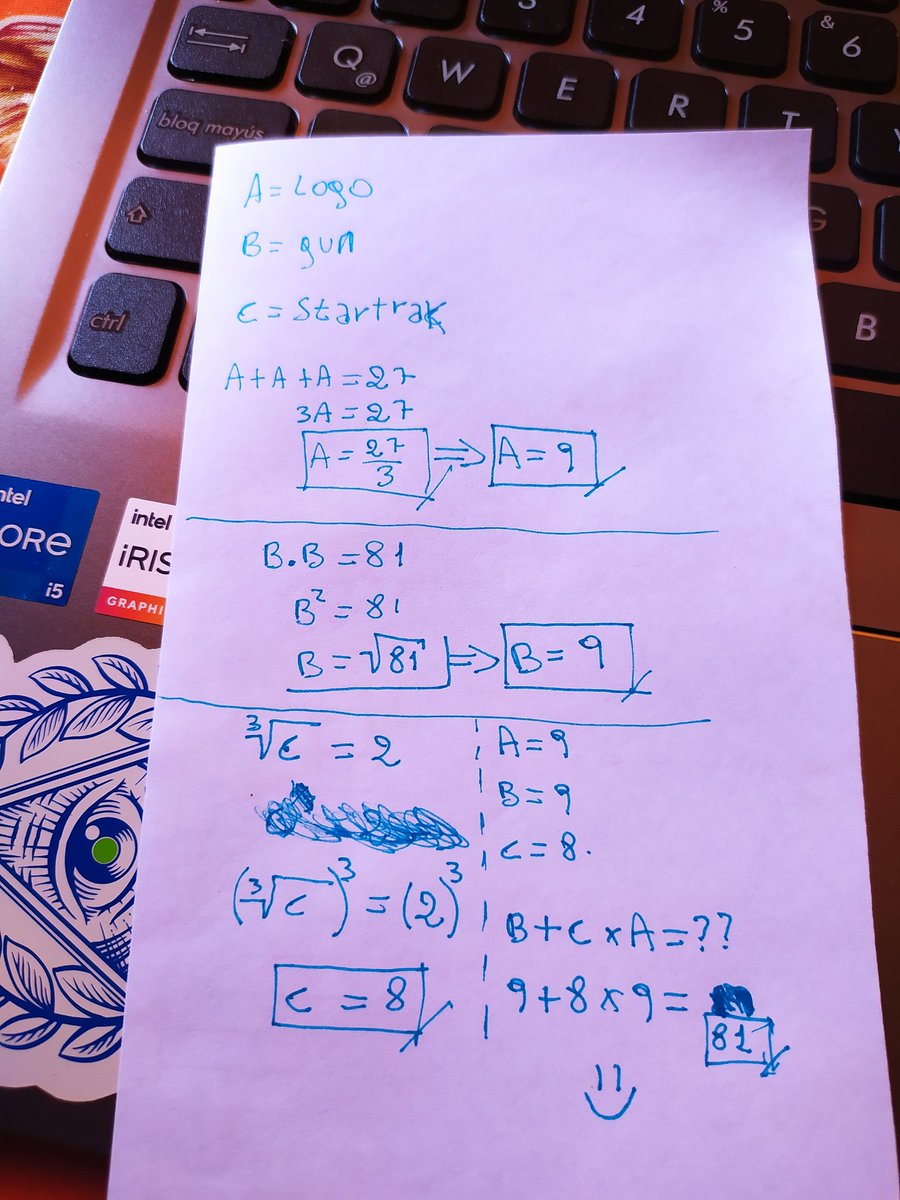 Q @
W
E
R
T
3
4
% 5
& 6
bloq mayús
ctrl
G
B
A = Logo
B = gun
C = Startrak
A + A + A = 27
3A = 27
A = 27/3 ⇒ A = 9
B.B = 81
B² = 81
B = √81 ⇒ B = 9
∛C = 2
(∛C)³ = (2)³
C = 8
A = 9
B = 9
C = 8.
B + C x A = ??
9 + 8 x 9 =
81
intel
ORE
i5
intel
iRIS
GRAPHI